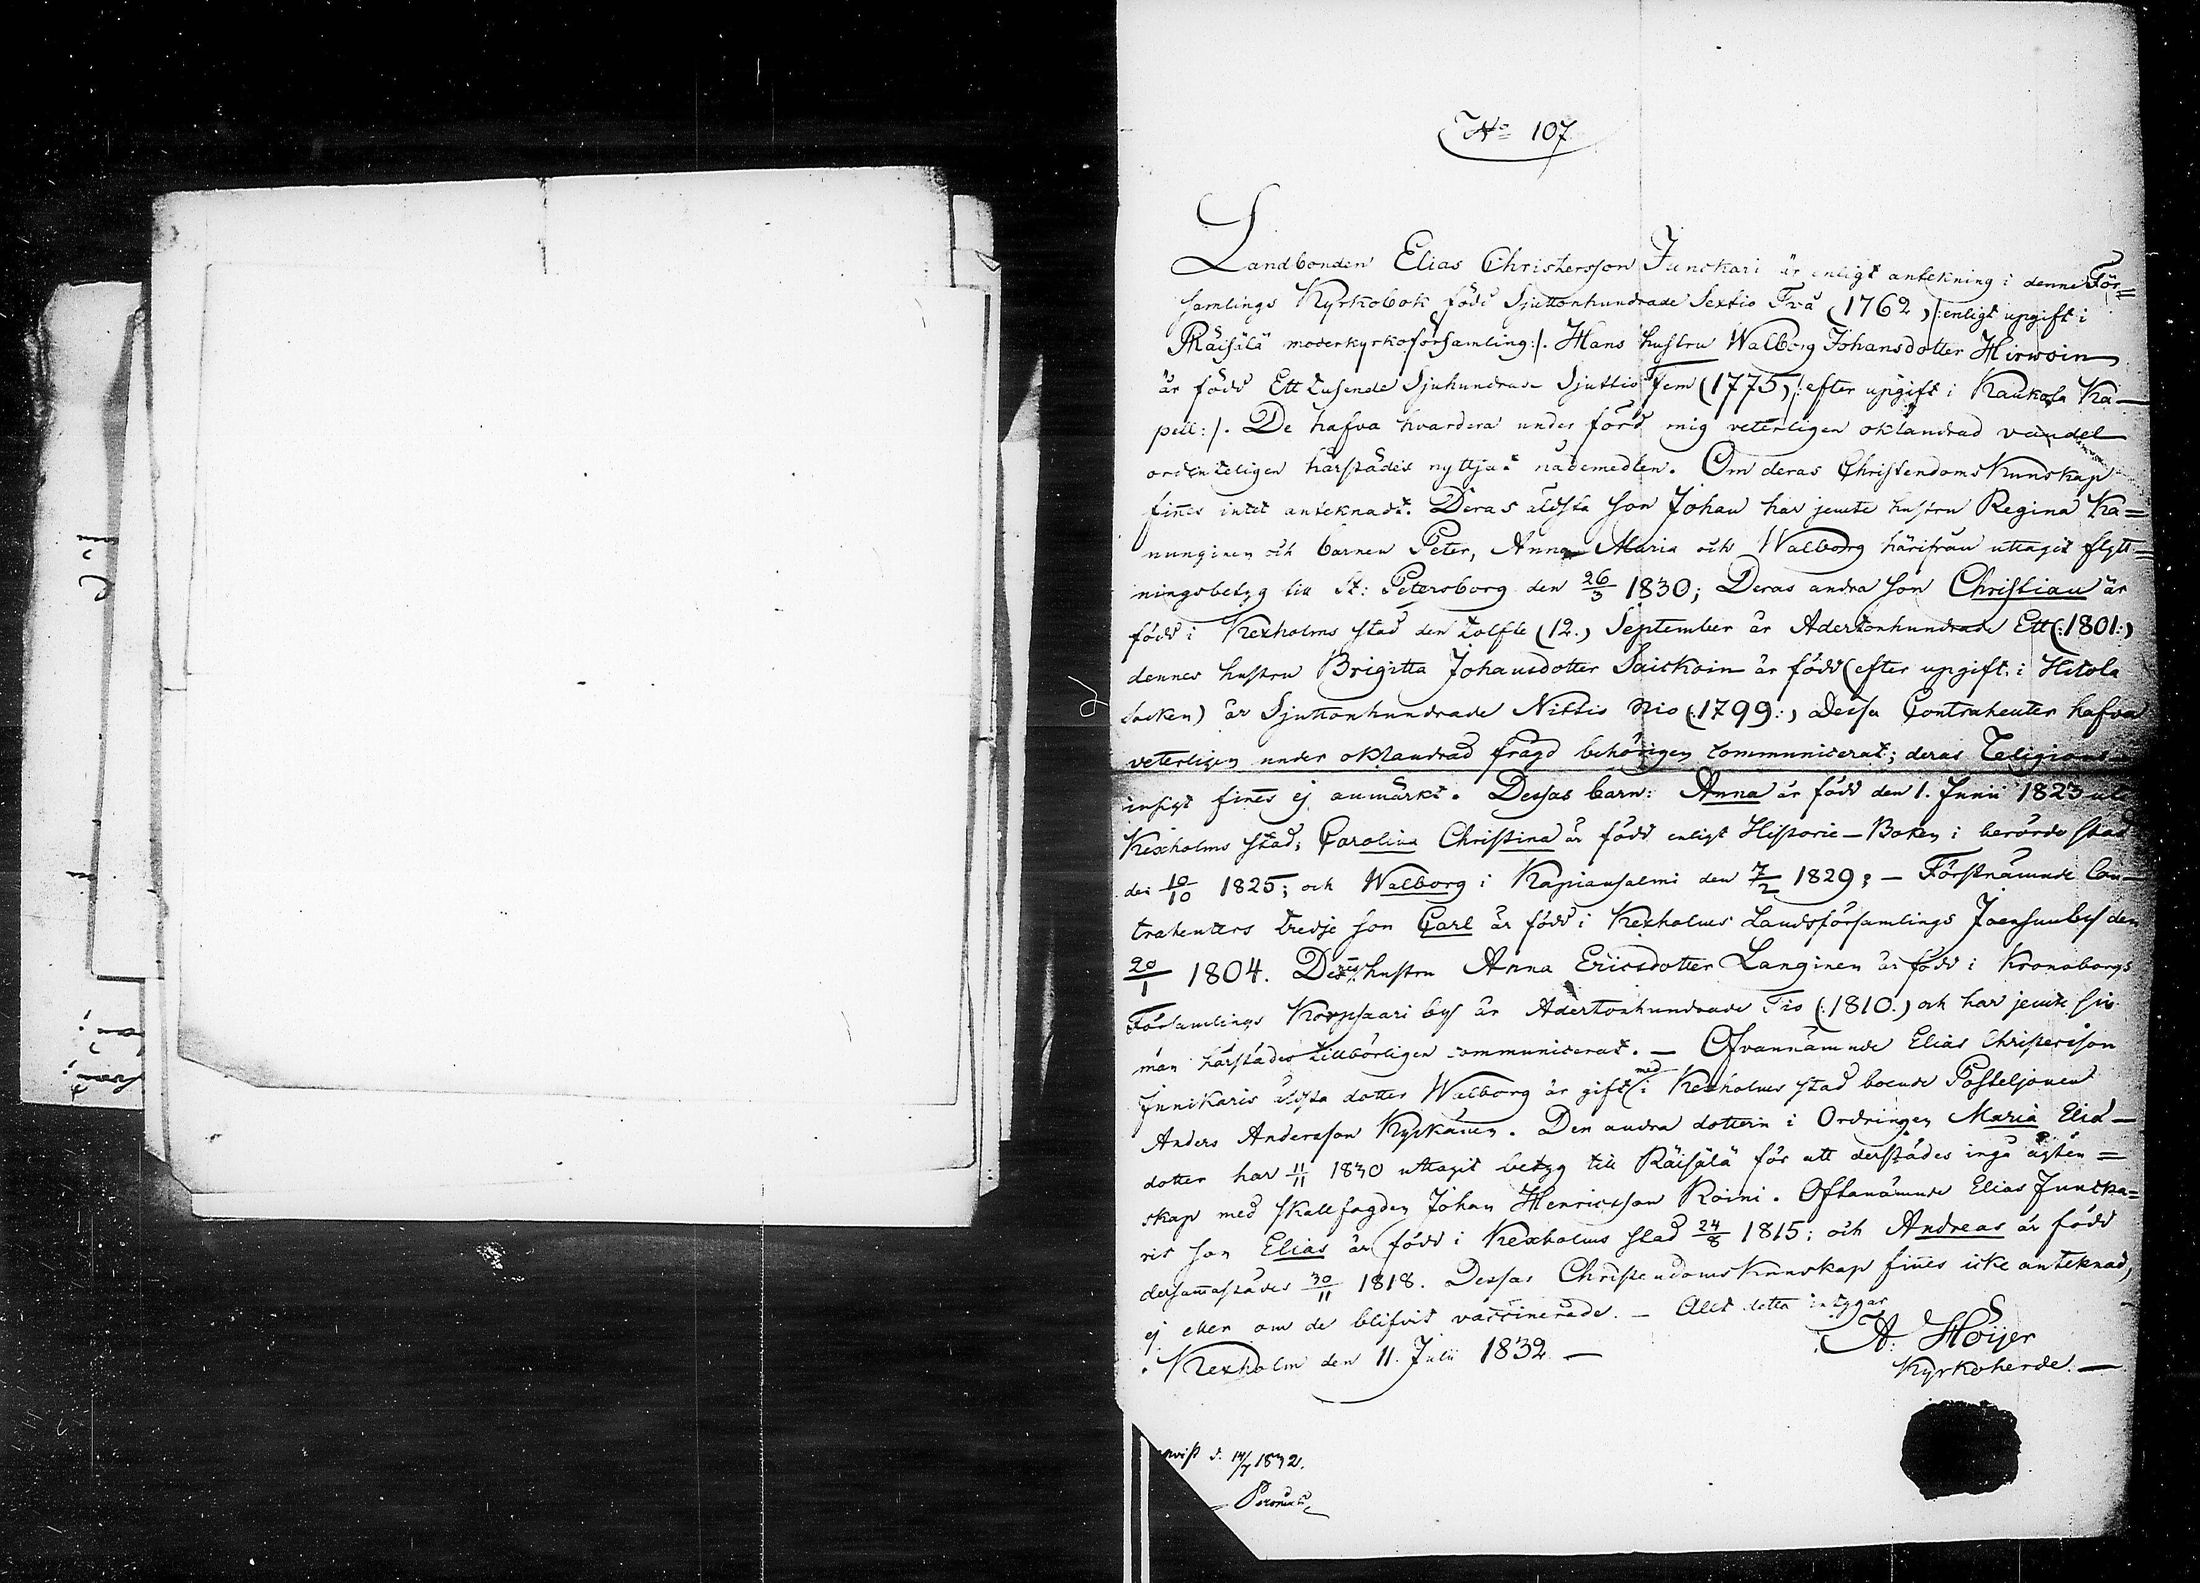 No 107
Landbonden Elias Christersson Junckari är enligt antekning i denne För=
samlings Kyrkobok född Sjuttonhundrade Sextio Två (1762) /: enligt upgift i
Räisälä moderkyrkoförsamling :/. Hans hustru Walborg Johansdotter Hirwoin
är född Ett tusende Sjuhundrade Sjuttio Fem (1775) /: efter upgift i Kaukola Ka-
pell :/. De hafva hvardera under förd mig veterligen oklandrad vandel
ordenteligen härstädes nyttjat nådemedlen. Om deras Christendoms Kunskap
fines intet anteknadt. Deras äldsta son Johan har jemte hustru Regina Ka=
nunginen och barnen Peter, Anna Maria och Walborg härifrån uttagit flytt=
ningsbetyg till St: Petersborg den 26/3 1830; Deras andra son Christian är
född i Kexholms stad den tolfte (12.) September år Adertonhundrade Ett (:1801:)
dennes hustru Brigitta Johansdotter Saickoin är född (efter upgift i Hitola
Socken) år Sjuttonhundrade Nittio Nio (:1799:) Dessa Contrahenter hafva
veterligen under oklandrad frägd behörigen communicerat; deras Religions
insigt fines ej anmärkt. Dessas barn: Anna är född den 1. Junii 1823 uti
Kexholms stad; Carolina Christina är född enligt Historie-Boken i berörde stad
den 10/10 1825; och Walborg i Kapiansalmi den 7/2 1829; - Förstnämnde Con-
trahenters tredje son Carl är född i Kexholms Landsförsamlings Joensuu by den
20/1 1804. Dess hustru Anna Ericsdotter Langinen är född i Kronoborgs
Församlings Korpsaari by år Adertonhundrade Tio (:1810:) och har jemte sin
man härstädes tillbörligen communicerat. - Ofvannämnde Elias Christersson
Junckaris äldsta dotter Walborg är gift med i Kexholms stad boende Posteljonen
Anders Andersson Kyckänen. Den andra dottern i Ordningen Maria Elia-
dotter har 11/11 1830 uttagit betyg till Räisälä för att derstädes ingå ägten=
skap med skallfogden Johan Henricsson Roini. Oftanämnde Elias Juncka=
ris son Elias är född i Kexholms stad 24/8 1815; och Andreas är född
dersammastädes 30/11 1818. Dessas Christendoms Kunskap fines icke anteknad,
ej eller om de blifvit vaccinerade. - Allt detta intygar
Kexholm den 11. Julii 1832 -
A. Höijer
Kyrkoherde. -
d. 14/7 1832.